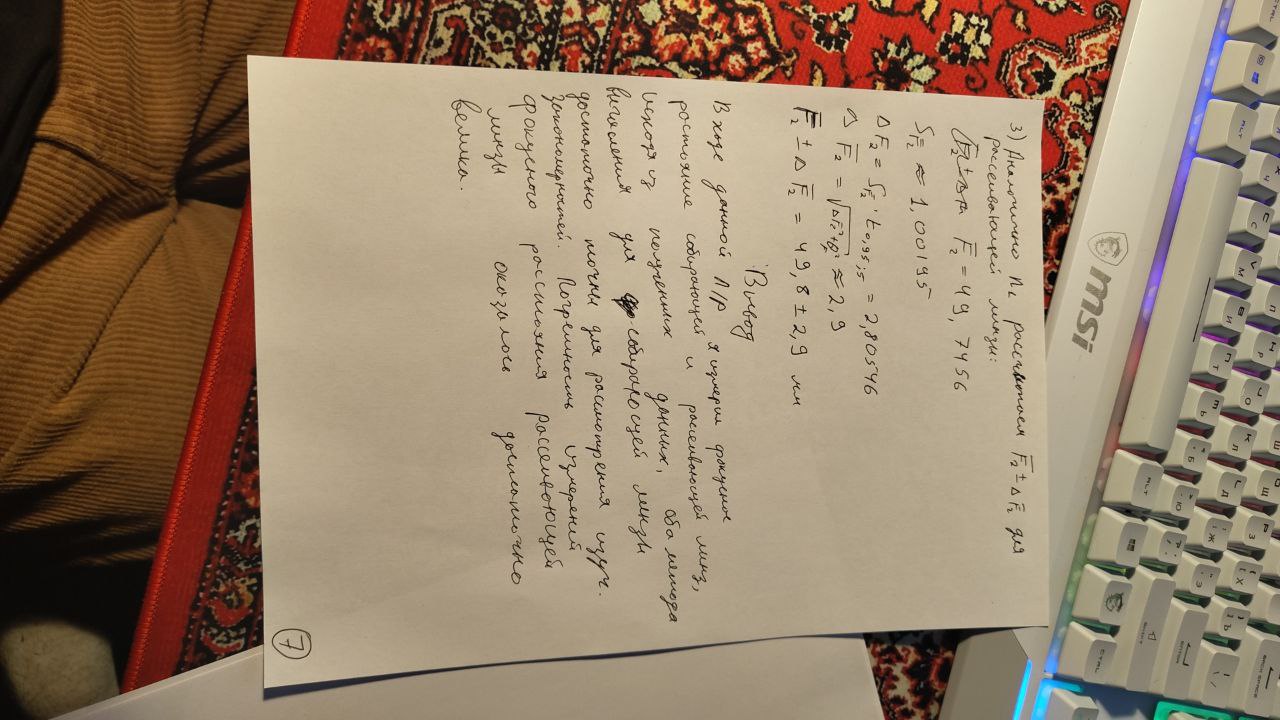 3) Аналогично п2 рассчитаем F̅₂ ± ΔF̅₂ для
рассеивающей линзы:
F̅₂ = 49,7456
S_F₂ ≈ 1,00195
ΔF₂ = S_F₂ · t₀,₉₅;₅ = 2,80546
ΔF̅₂ = √ΔF₂² ≈ 2,9
F̅₂ ± ΔF̅₂ = 49,8 ± 2,9 мм
Вывод
В ходе данной Л/Р я измерил фокусное
ростояние собирающей и рассеивающей линз,
исходя из полученных данных, оба метода
вычисления для собирающей линзы
достаточно точны для рассмотрения изуч.
закономерностей. Погрешность измерений
фокусного расстояния рассеивающей
линзы оказалось достаточно
велика.
7
msi